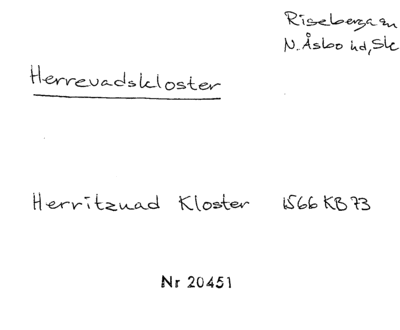 Riseberga sn
N. Åsbo hd, Sk
Herrevadskloster
Herritzuad Kloster 1566 KB 73
Nr 20451